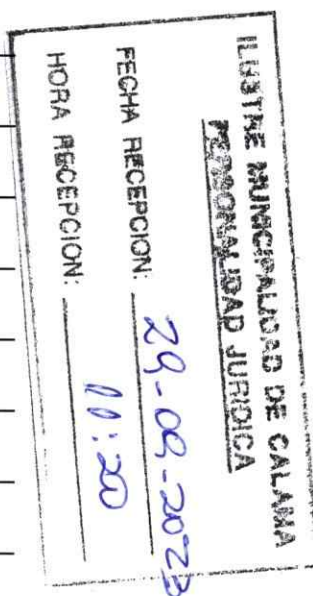 ILUSTRE MUNICIPALIDAD DE CALAMA
PERSONALIDAD JURIDICA
FECHA RECEPCION: 29-09-2023
HORA RECEPCION: 11:20